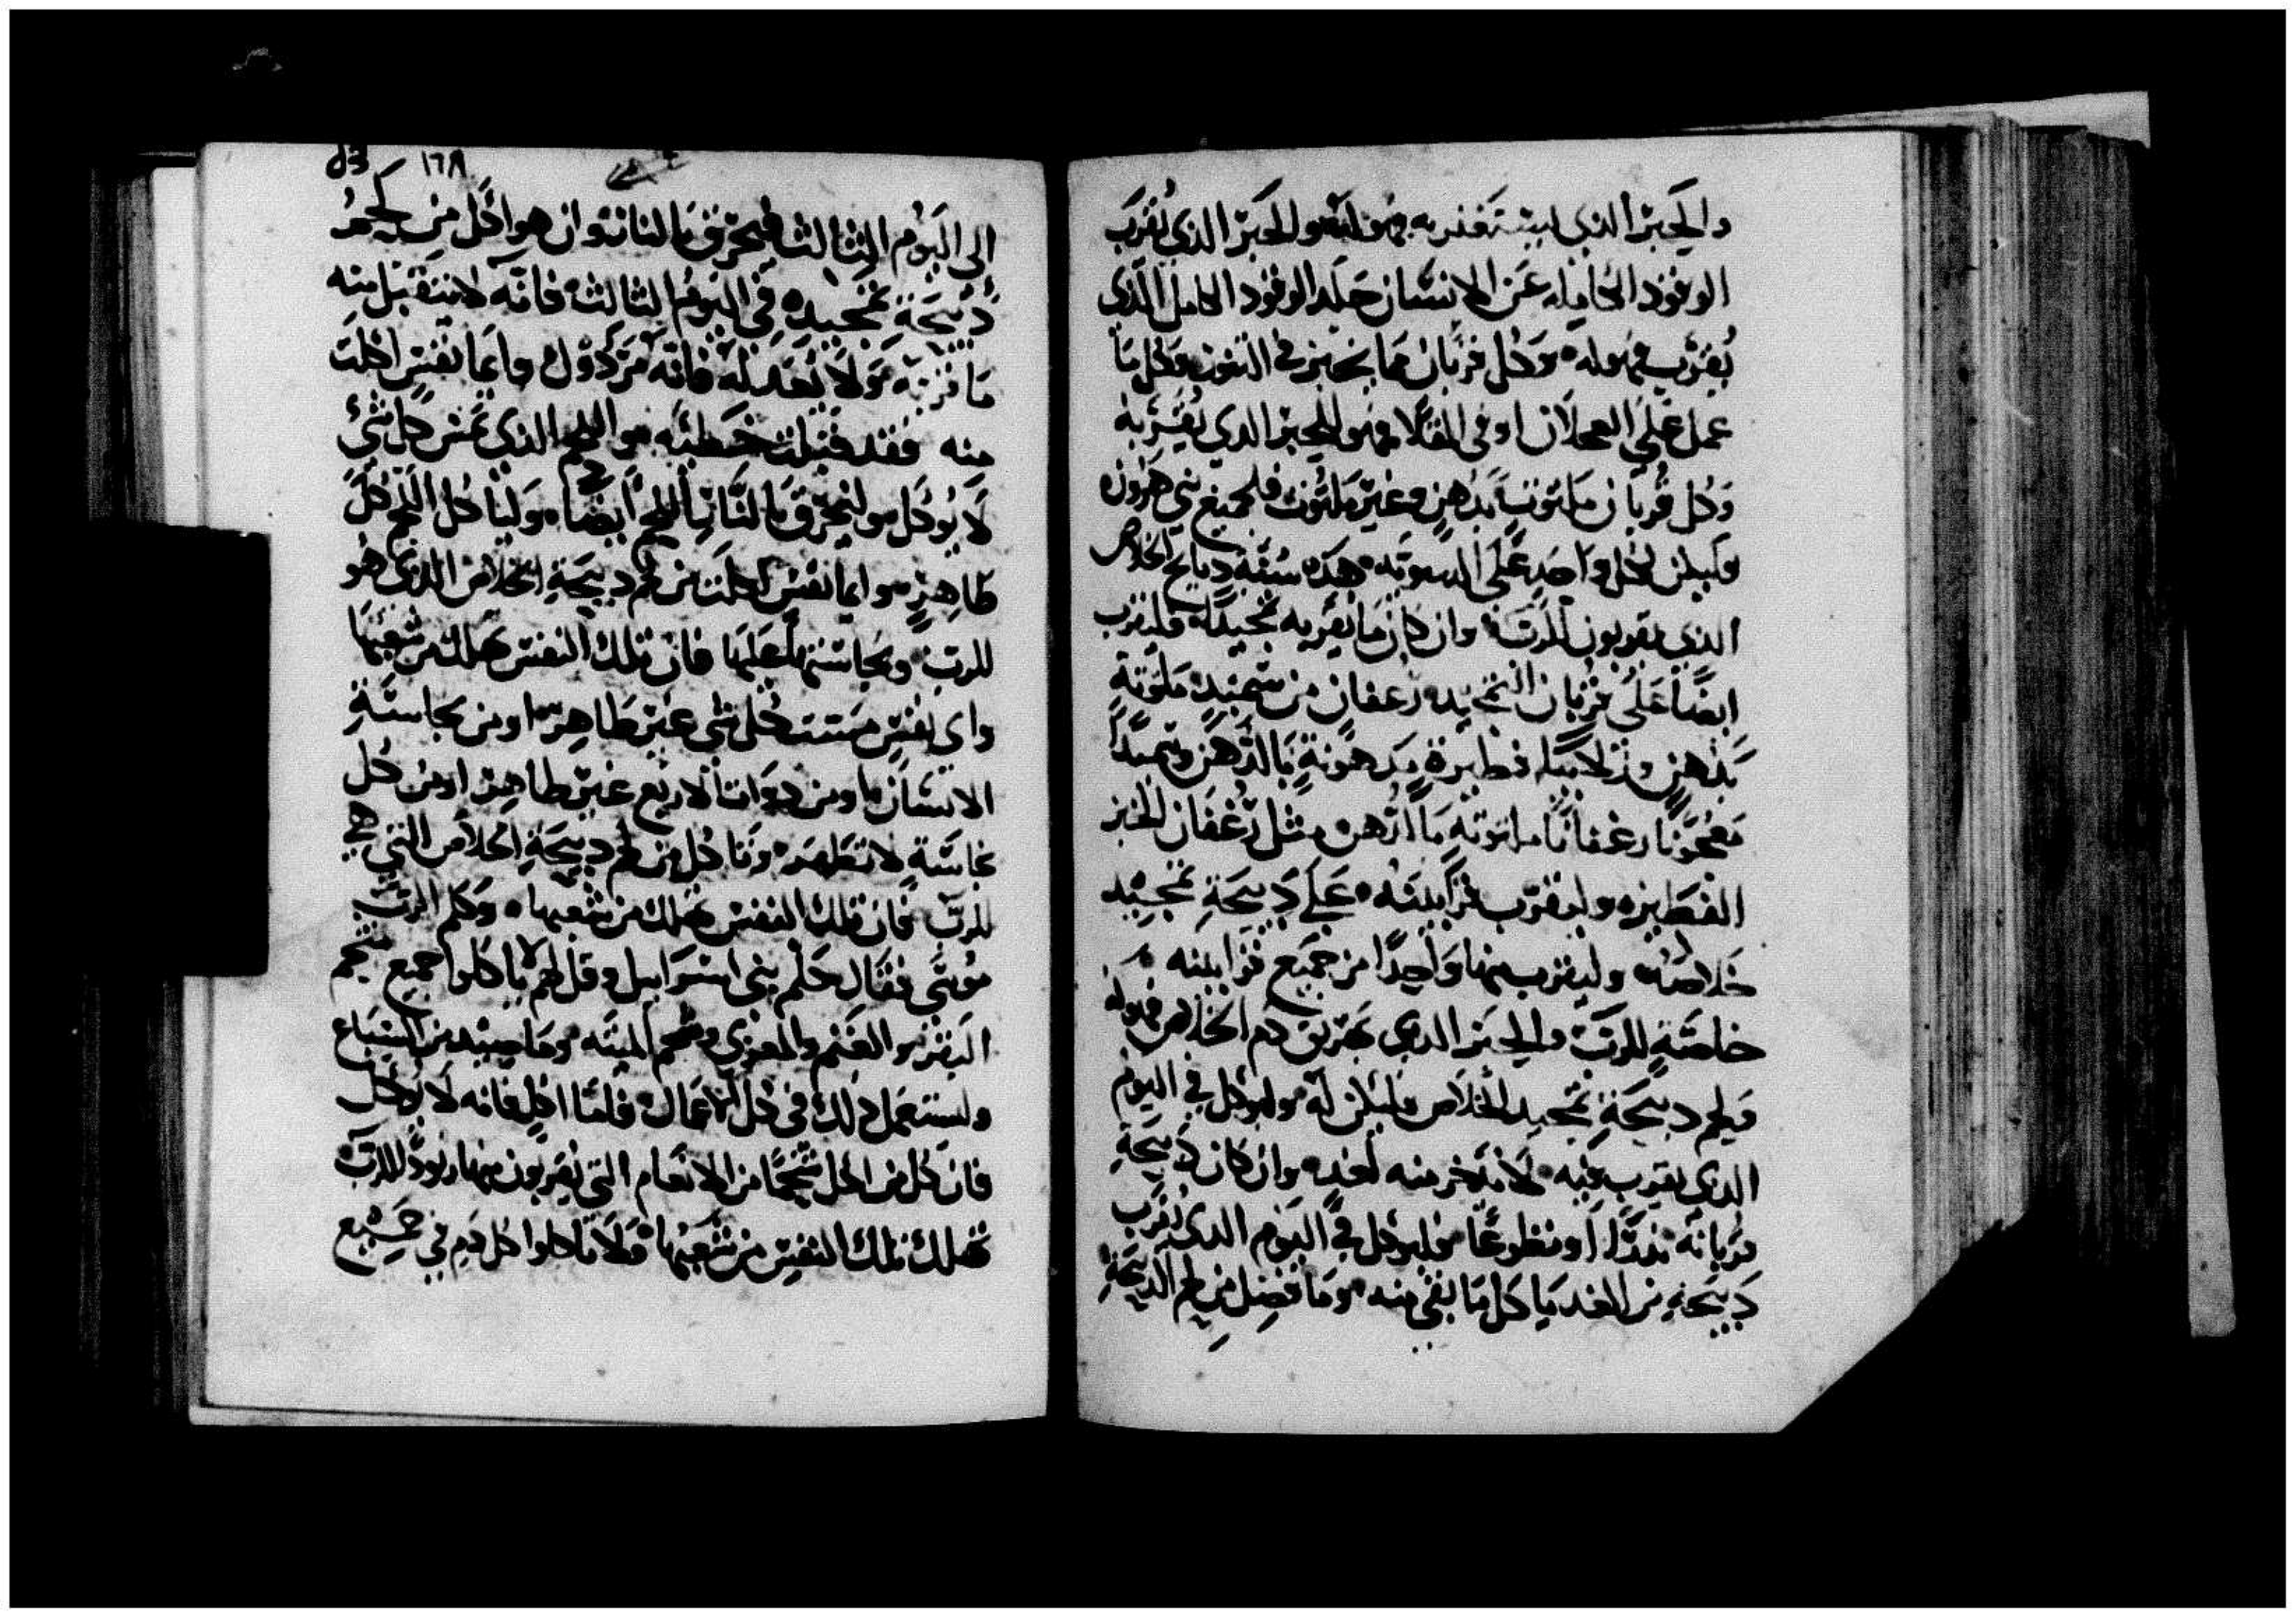 والحَبْر الذي ليستغفر به فهو له والحَبْر الذي يُقرّب
الوقود الكامل عن الانسان جلد الوقود الكامل الذي
يُقرّب فهوله وكل قربان مما يخبز في التنور وكل ما
عمل على العجلان او في المقلا فهو للحبر الذي يقربه
وكل قربان ملتوت بدهن وغير ملتوت فلجميع بني هرون
فليكن لكل واحد على السويه هذه سنة دبايح الخلاص
الذي يقربون للرب وان كان ما يقربه تمجيدًا فليقرب
ايضًا على قربان التمجيد رغفان من سميد ملتوتة
بدهن وزلابيا فطيرة مدهونة بالدهن وسميدًا
معجونا رغفانًا ملتوته بالدهن مثل رغفان الخبز
الفطيره وليقرب قرابينه على دبيحة تمجيد
خلاصه وليقرب منها واحدًا من جميع قرابينه
خاصّة للرب والحبر الدي يهريق دم الخلاص فهوله
ولحم دبيحة تمجيد الخلاص فليكن له وليوكل في اليوم
الدي يقرب فيه لا يدخر منه لغد وان كان دبيحة
قربانه ندرًا او متطوعًا فليوكل في اليوم الدي يقرب
دبيحته من الغد ياكل ما بقي منه وما فضل من لحم الدبيحة
١٦٨ 83
الى اليوم الثالث فيحرق بالنار وان هو اكل من لحم
دبيحة تمجيده في اليوم الثالث فانه لا يتقبل منه
ما قربه ولا نعد له فانه مردول وايما نفس اكلت
منه فقد قبلت خطيئه واللحم الذي يمس كل شي
لا يوكل وليحرق بالنار اللحم ايضا وليأكل اللحم كل
طاهر وايما نفس اكلت من لحم دبيحة الخلاص الذي هو
للرب ونجاستها عليها فان تلك النفس تهلك من شعبها
واي نفس مست كل شي غير طاهر او من نجاسة
الانسان او من دوات الاربع غير طاهر او من كل
نجاسة لا تطهر وتاكل من لحم دبيحة الخلاص التي هي
للرب فان تلك النفس تهلك من شعبها وكلم الرب
موسى فقال كلم بني اسراييل وقل لهم لا ياكلوا جميع شحم
البقر والغنم والمعزي وشحم الميته وما صيد من السباع
وليستعمل ذلك في كل الاعمال فاما اكل فانه لا يوكل
فان كل من اكل شحمًا من الانعام التي يقربون منها وقودًا للرب
تهلك تلك النفس من شعبها ولا تاكلوا كل دم في جميع